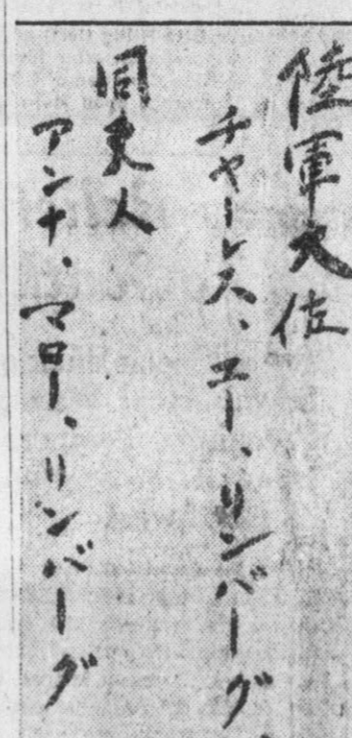 陸軍大佐
チャーレス、エー、リンバーグ
同夫人
アンナ、マロー、リンバーグ